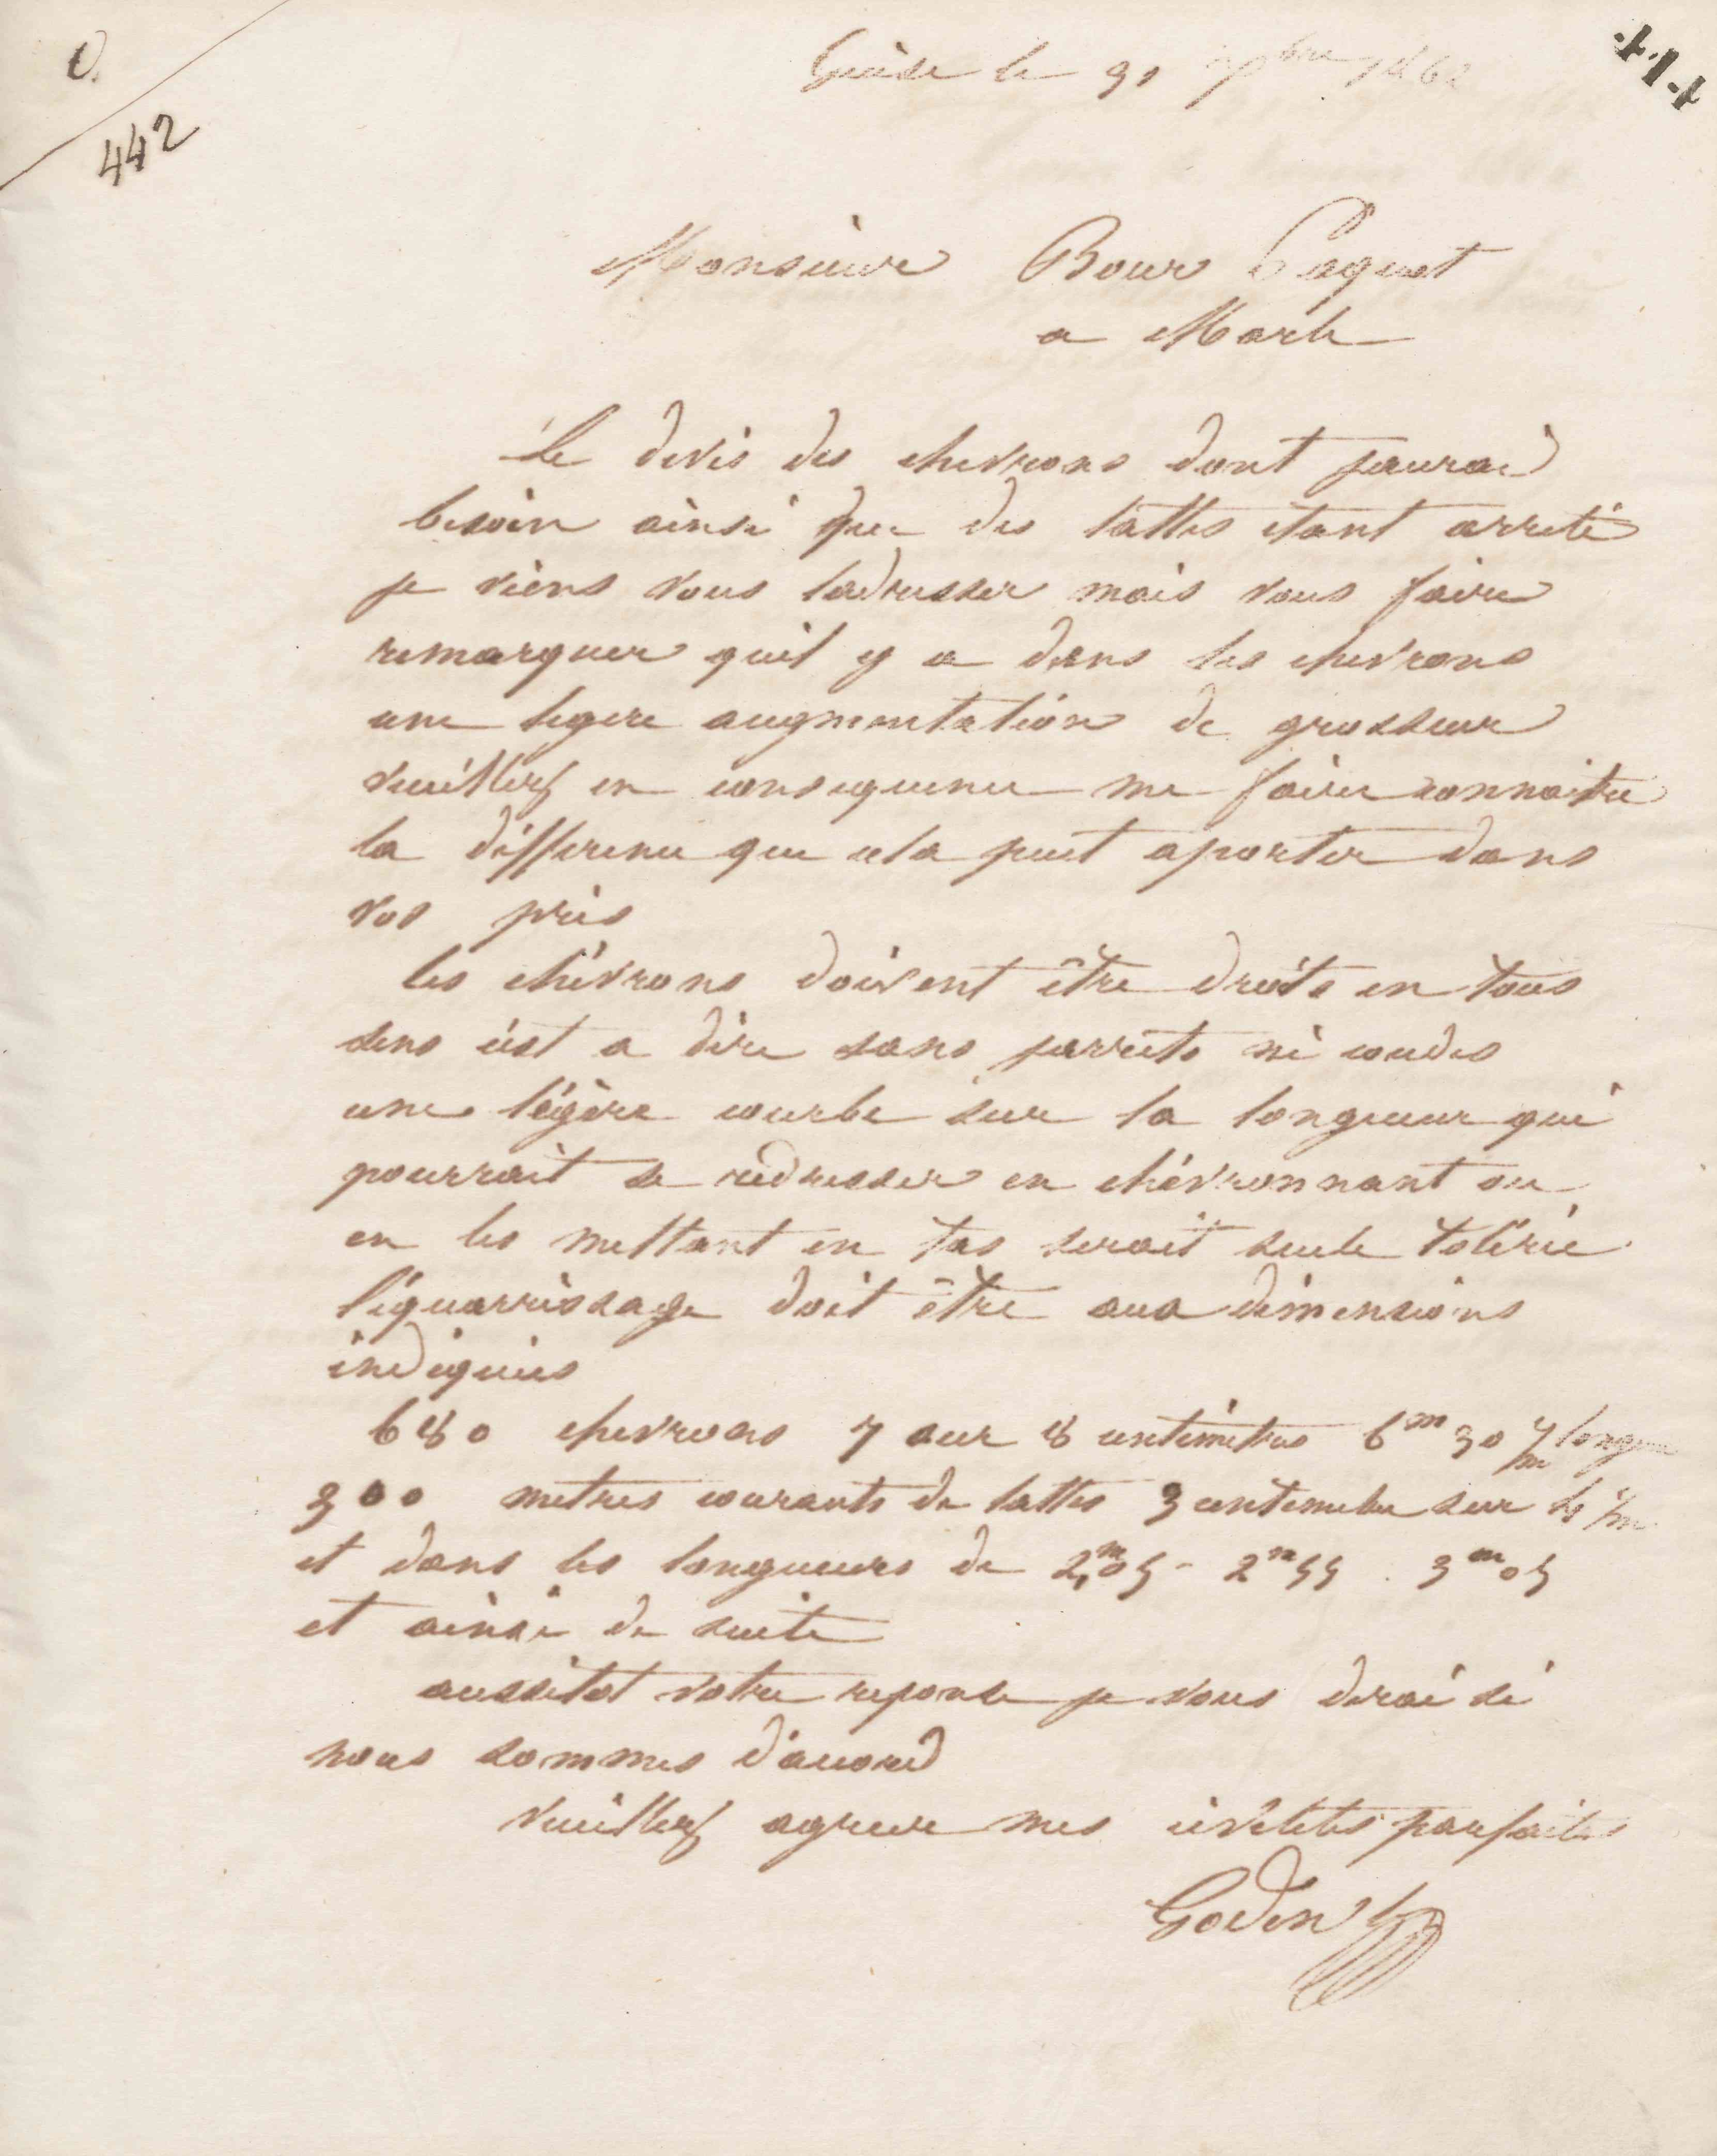 O.
442
Guise le 1862
Monsieur Bour Paquet
a Marle
Le devis des chevrons dont jaurai
besoin ainsi que des lattes étant arreté
je viens vous ladresser mais vous faire
remarquer quil y a dans les chevrons
une legere augmentation de grosseur
veuillez en consequence me faire connaitre
la difference que cela peut aporter dans
vos prix
les chévrons doivent être droits en tous
sens c'est a dire sans jarrets ni coudes
une légère courbe sur la longueur qui
pourrait se redresser en chévronnant ou
en les mettant en tas serait seule tolérée
l'équarrissage doit être aux dimensions
indiquées
680 chevrons 7 sur 8 centimètres 6m 30 longueur
300 metres courants de lattes 3 centimetre sur
et dans les longueurs de 2,m05 - 2m55 . 3m05
et ainsi de suite
aussitot votre reponse je vous dirai si
nous sommes d'accord
veuillez agreer mes civilités parfaites
Godin